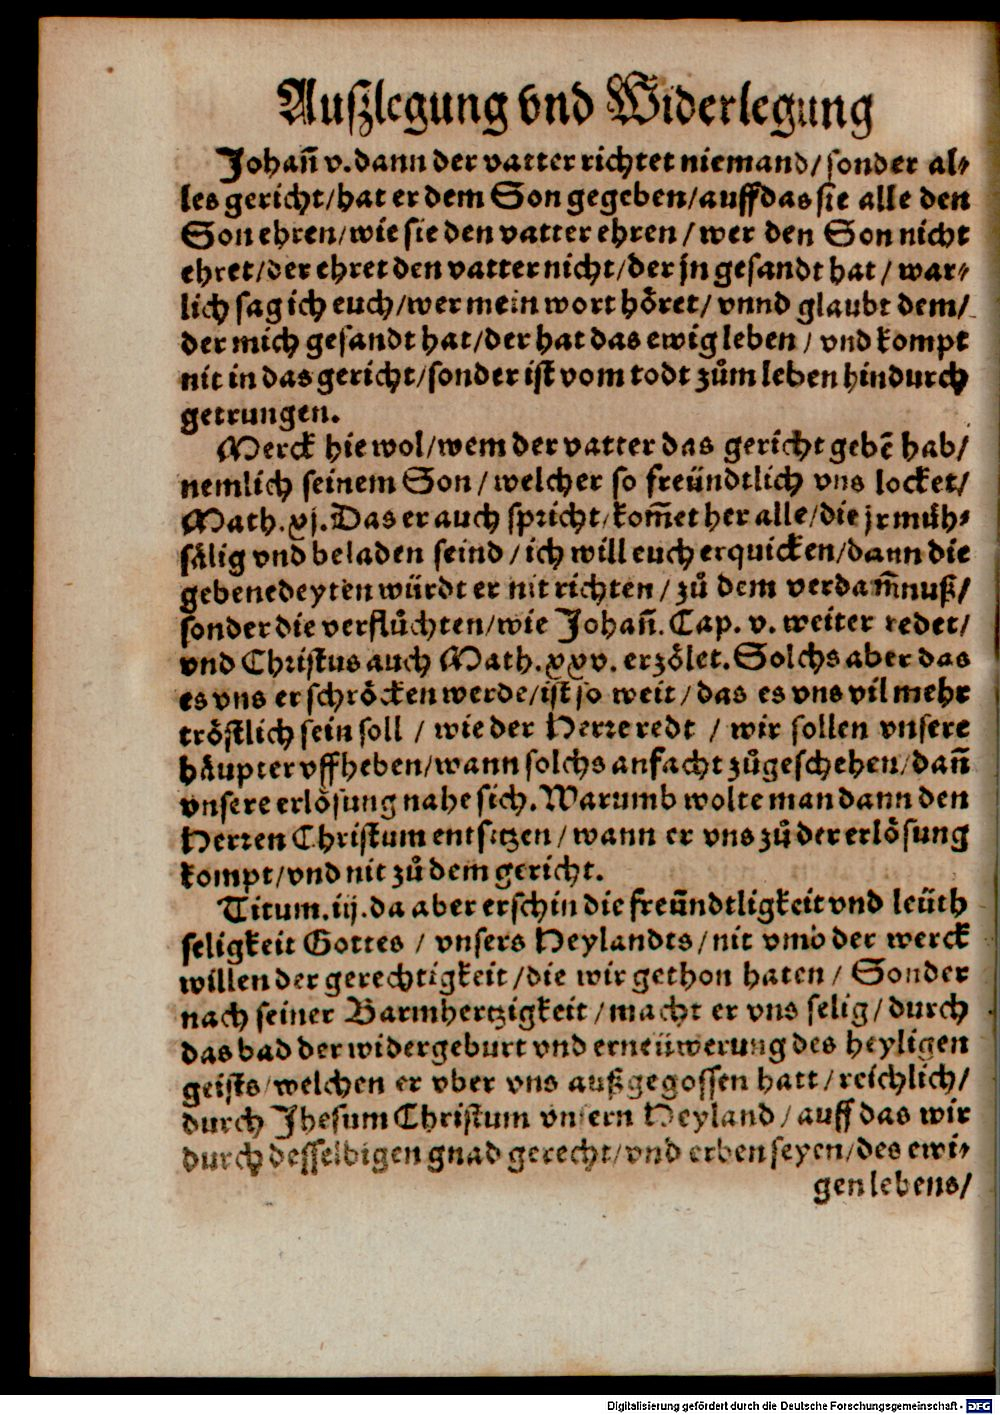 Auszlegung vnd Widerlegung
Johañ v. dann der vatter richtet niemand/ sonder al⸗
les gericht/ hat er dem Son gegeben/ auff das sie alle den
Son ehren/ wie sie den vatter ehren/ wer den Son nicht
ehret/ der ehret den vatter nicht/ der jn gesandt hat/ war⸗
lich sag ich euch/ wer mein wort hoͤret/ vnnd glaubt dem/
der mich gesandt hat/ der hat das ewig leben/ vnd kompt
nit in das gericht/ sonder ist vom todt zuͦm leben hindurch
getrungen.
Merck hie wol/ wem der vatter das gericht gebē hab/
nemlich seinem Son/ welcher so freündtlich vns locket/
Math. xj. Das er auch spricht/ kom̃et her alle/ die jr muͤh⸗
saͤlig vnd beladen seind/ ich will euch erquicken/ dann die
gebenedeyten wuͤrdt er nit richten/ zuͦ dem verdam̃nuß/
sonder die verfluͦchten/ wie Johañ. Cap. v. weiter redet/
vnd Christus auch Math. xxv. erzoͤlet. Solchs aber das
es vns erschroͤcken werde/ ist so weit/ das es vns vil mehr
troͤstlich sein soll/ wie der Herre redt/ wir sollen vnsere
haͤupter vffheben/ wann solchs anfacht zuͦgeschehen/ dañ
vnsere erloͤsung nahe sich. Warumb wolte man dann den
Herren Christum entsitzen/ wann er vns zuͦ der erloͤsung
kompt/ vnd nit zuͦ dem gericht.
Titum. iij. da aber erschin die freündtligkeit vnd leüth
seligkeit Gottes/ vnsers Heylandts/ nit vmb der werck
willen der gerechtigkeit/ die wir gethon haten/ Sonder
nach seiner Barmhertzigkeit/ macht er vns selig/ durch
das bad der widergeburt vnd erneüwerung des heyligen
geists/ welchen er vber vns außgegossen hatt/ reichlich/
durch Jhesum Christum vnsern Heyland/ auff das wir
durch desselbigen gnad gerecht/ vnd erben seyen/ des ewi⸗
gen lebens/
Digitalisierung gefördert durch die Deutsche Forschungsgemeinschaft - DFG